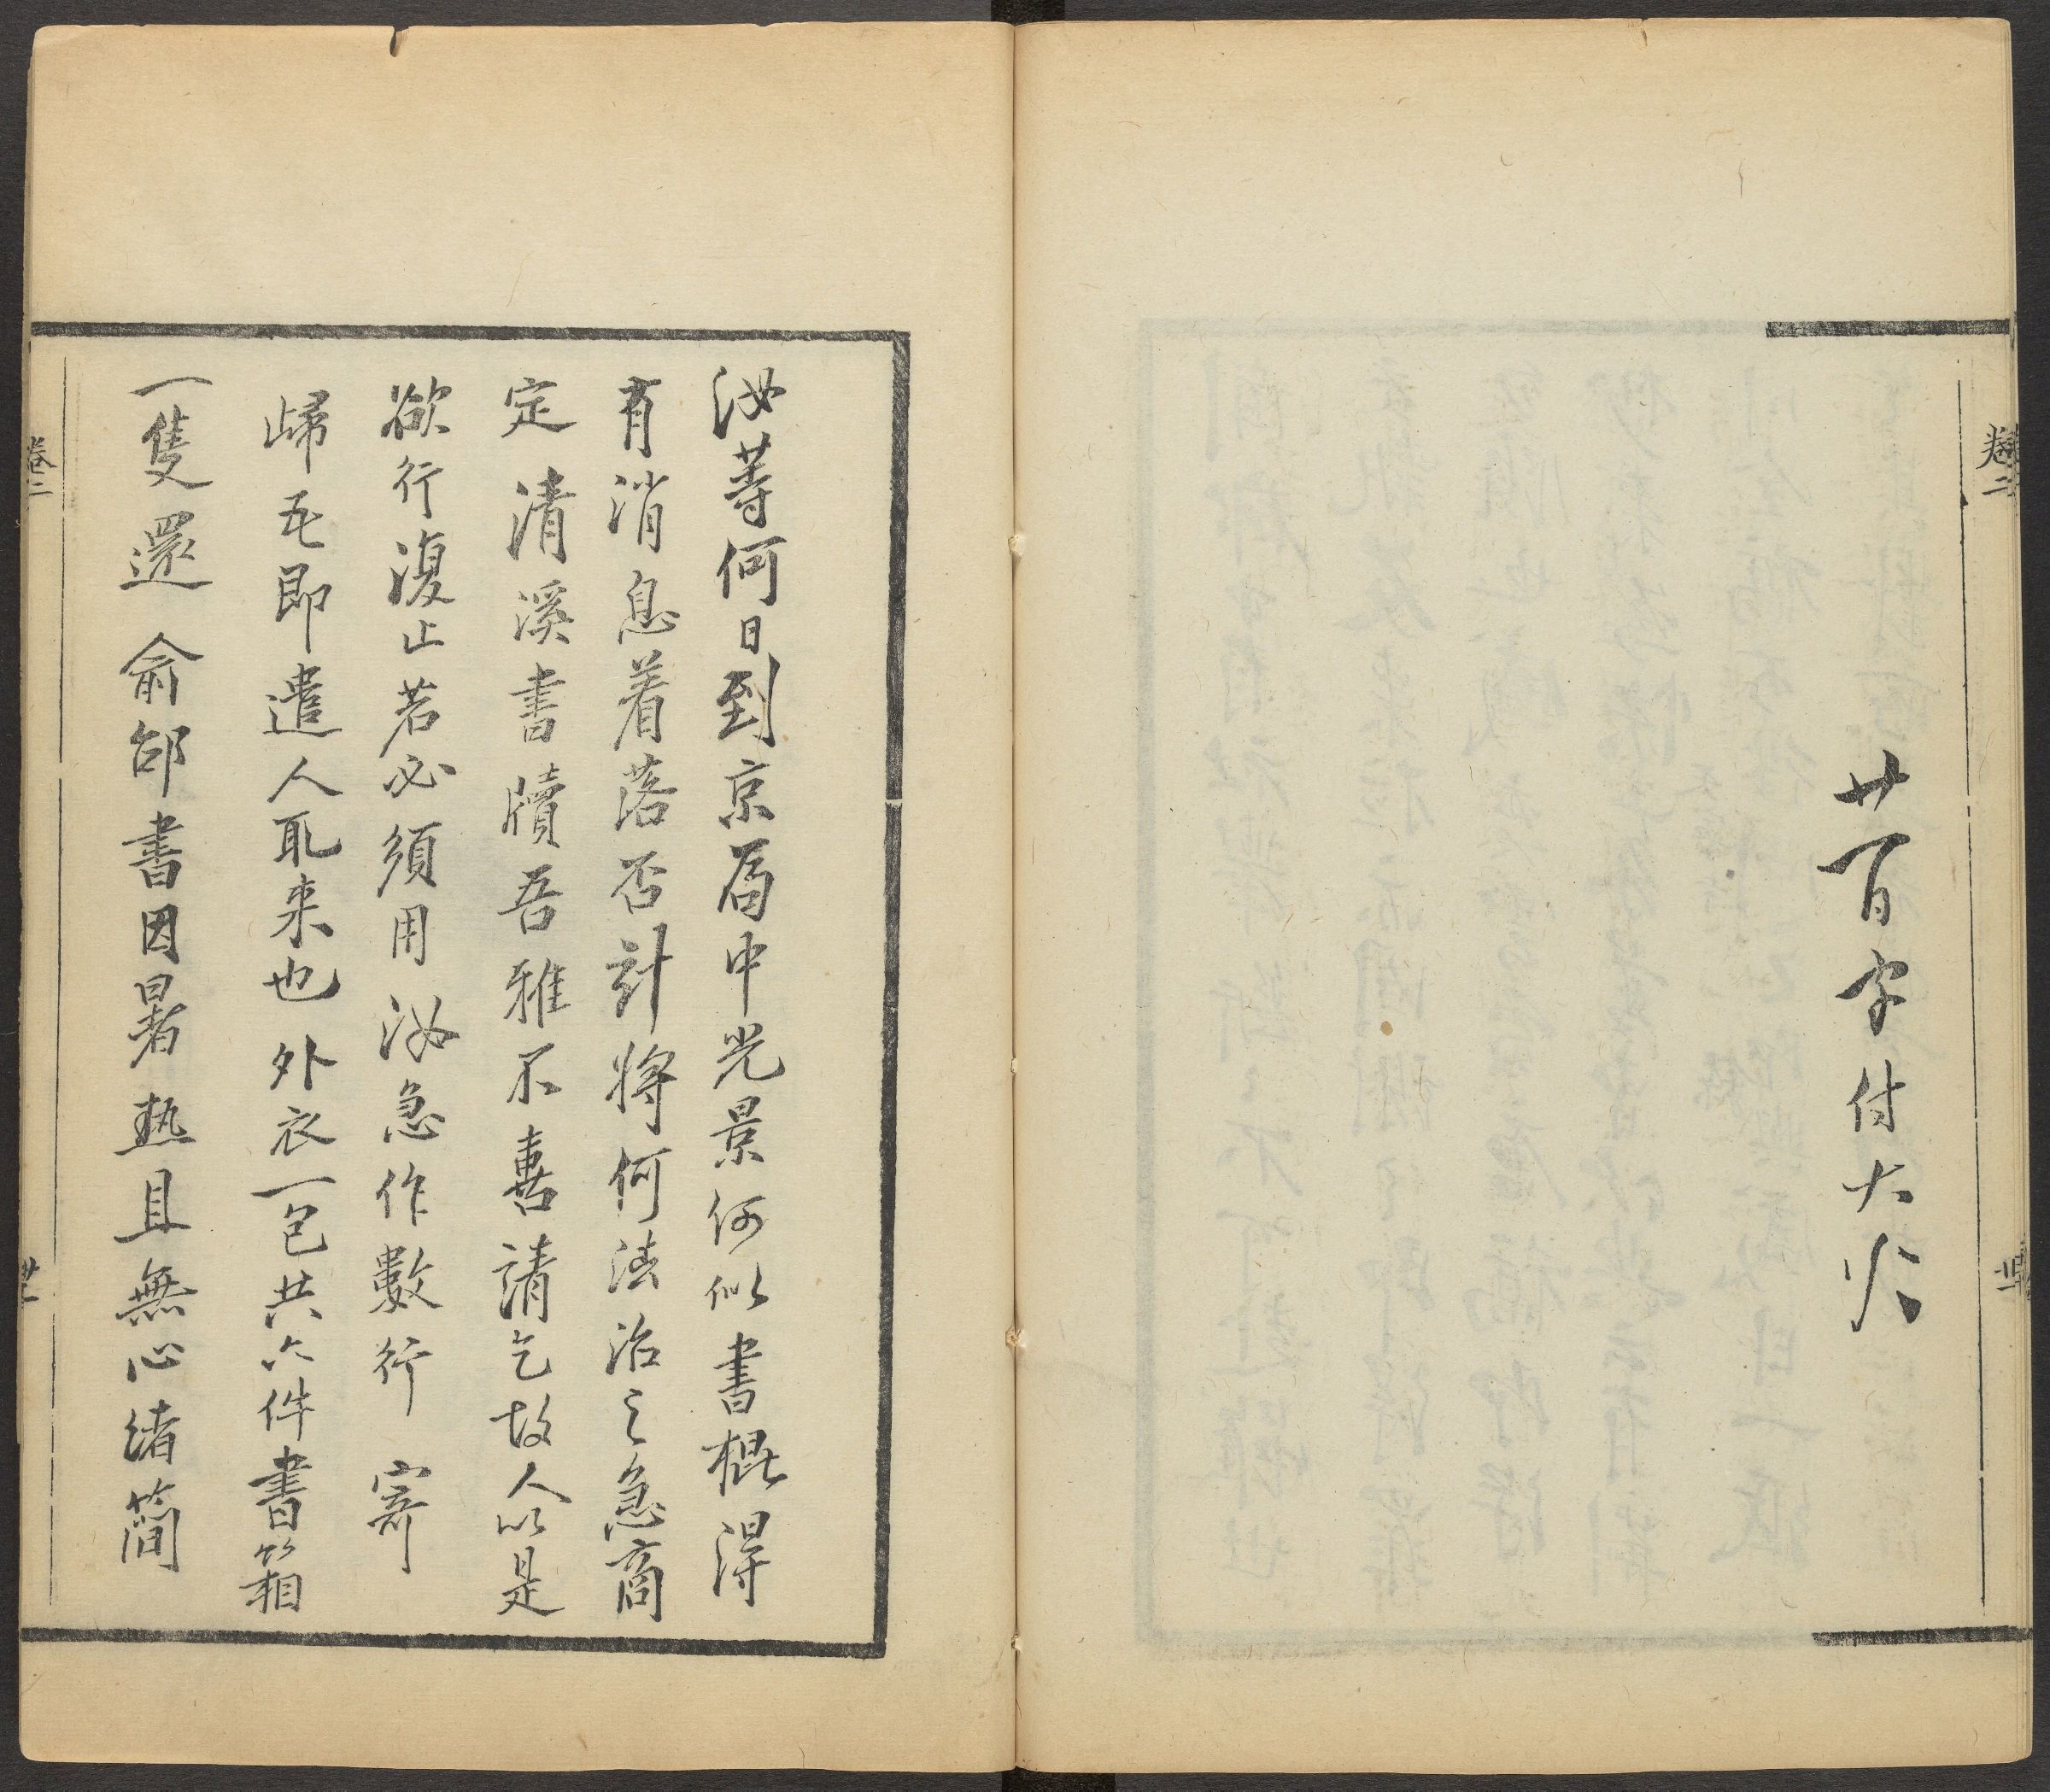 卷二
廿一日字付大
汝等何日到京寓中光景何似書棍得
有消息着落否計將何法治之急商
定 清溪書牘吾雅不喜請乞故人以是
欲行復止若必須用 汝急作數行 寄
歸吾即遣人取来也 外衣一包共六件書箱
一隻還 俞邰書因暑熱且無心緒簡
卷二